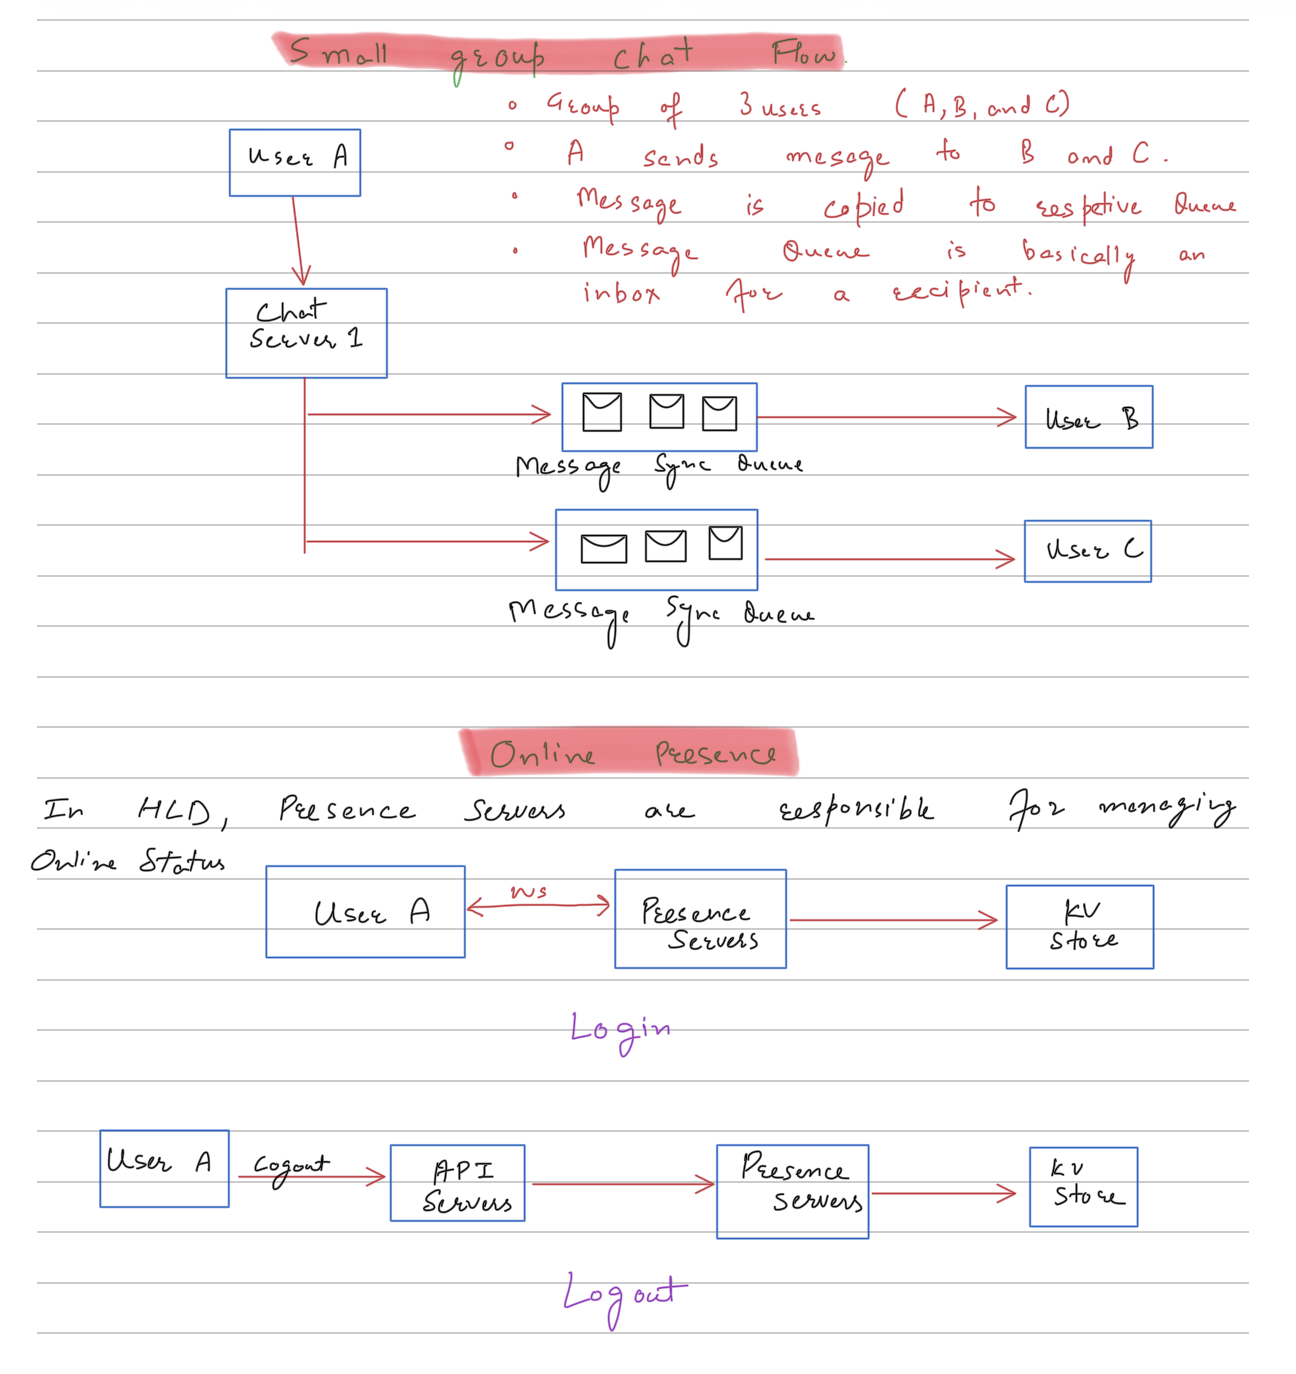 Small group chat Flow.
Group of 3 users (A, B, and C)
A sends mesage to B and C.
Message is copied to respetive Queue
Message Queue is basically an
inbox for a recipient.
User A
Chat
Server 1
User B
Message Sync Queue
User C
Message Sync Queue
Online Presence
In HLD, Presence Servers are responsible for managing
Online Status
User A
WS
Presence
Servers
KV
Store
Login
User A
Logout
API
Servers
Presence
Servers
KV
Store
Logout